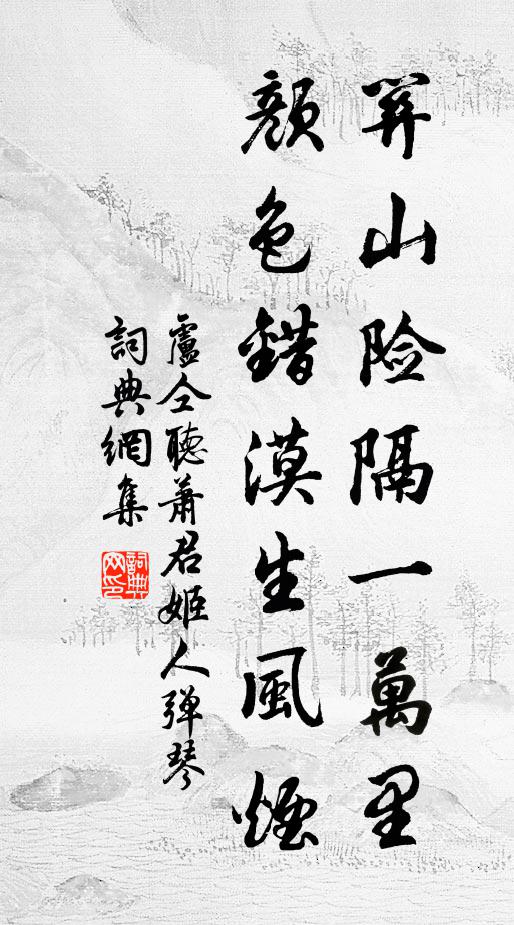 關山險隔一萬里
顏色錯漠生風煙
盧仝聽蕭君姬人彈琴
詞典網集
詞典網印